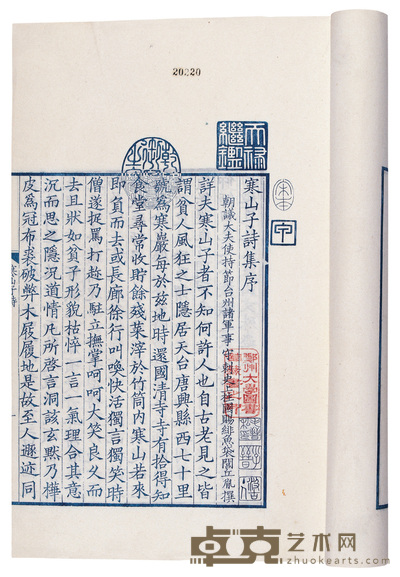 20220
天祿繼鑑
乾隆御覽之寶
宋本
甲
寒山子詩集序
朝議大夫使持節台州諸軍事守刺史上柱國賜緋魚袋閭丘胤撰
詳夫寒山子者不知何許人也自古老見之皆
謂貧人風狂之士隱居天台唐興縣西七十里
號爲寒巖每於茲地時還國清寺寺有拾得知
食堂尋常收貯餘殘菜滓於竹筒內寒山若來
即負而去或長廊徐行叫喚快活獨言獨笑時
僧遂捉罵打趂乃駐立撫掌呵呵大笑良久而
去且狀如貧子形貌枯悴一言一氣理合其意
沉而思之隱況道情凡所啓言洞該玄默乃樺
皮爲冠布裘破弊木屐履地是故至人遯迹同
大學圖書
卓克艺术网
zhuokearts.com